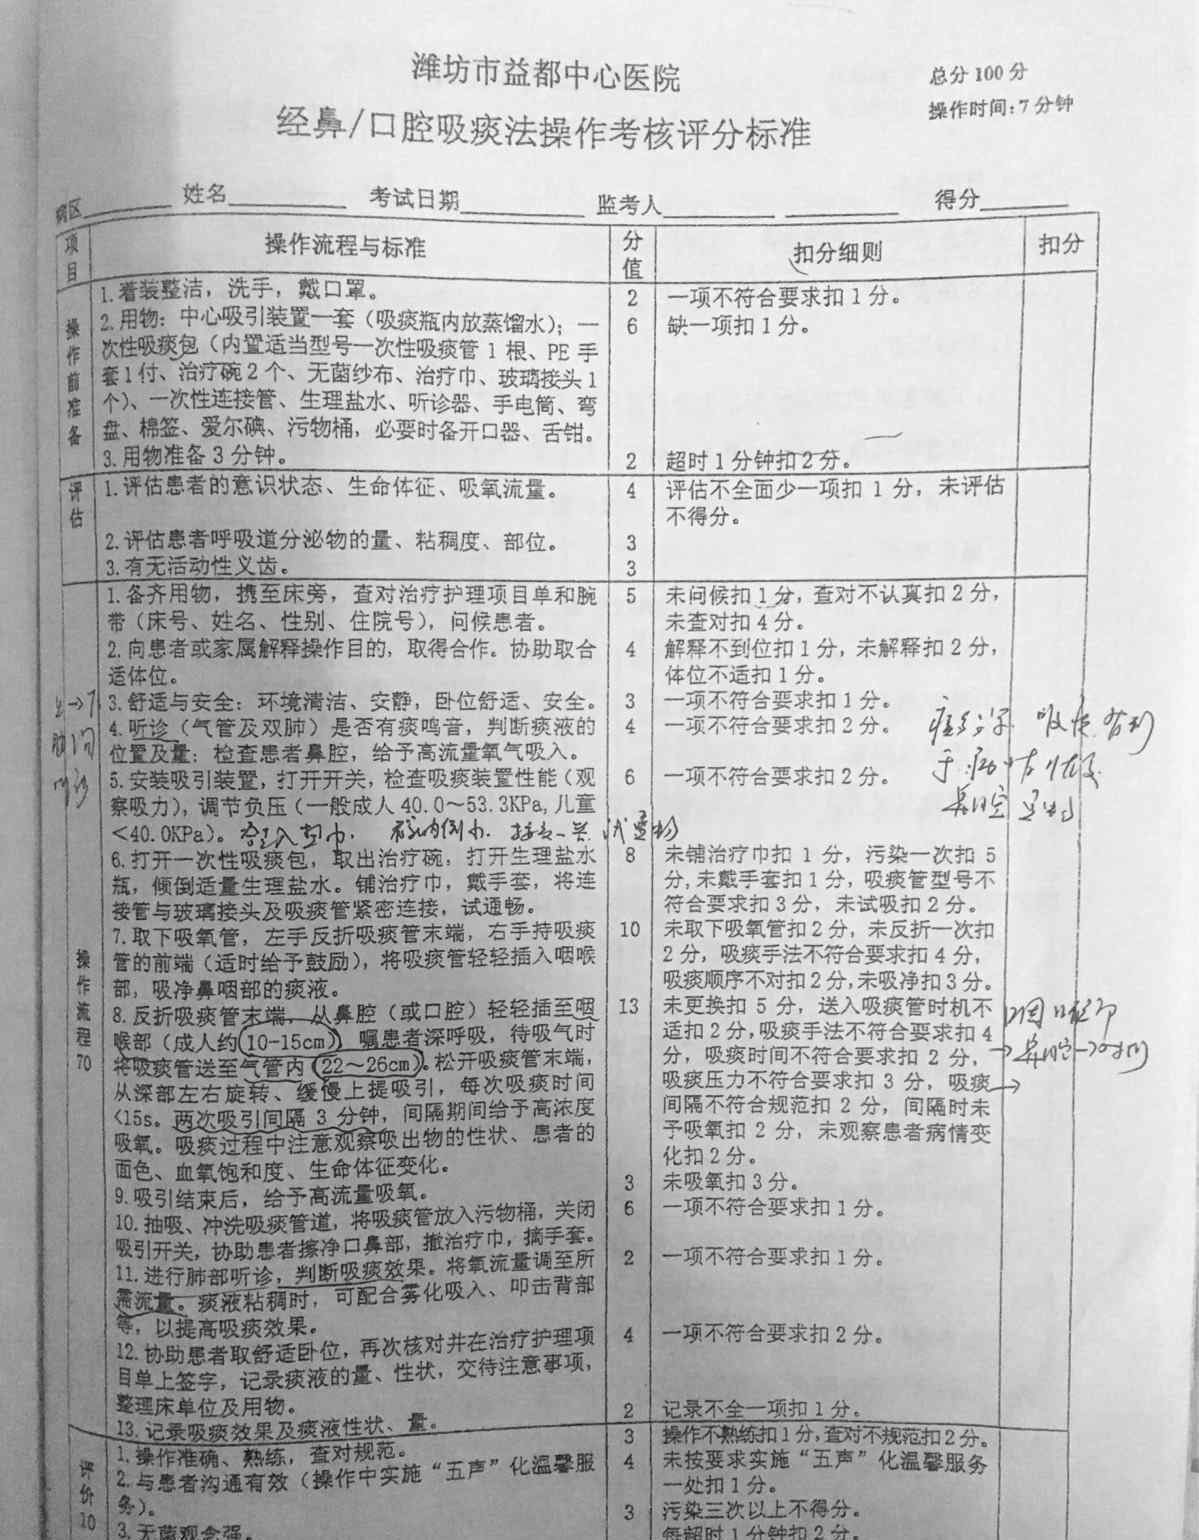 潍坊市益都中心医院
总分 100 分
经鼻/口腔吸痰法操作考核评分标准
操作时间:7 分钟
病区 姓名 考试日期 监考人 得分
项目 操作流程与标准 分值 扣分细则 扣分
操作前准备
1.着装整洁，洗手，戴口罩。 2 一项不符合要求扣 1 分。
2.用物：中心吸引装置一套（吸痰瓶内放蒸馏水）；一 6 缺一项扣 1 分。
次性吸痰包（内置适当型号一次性吸痰管 1 根、PE 手
套 1 付、治疗碗 2 个、无菌纱布、治疗巾、玻璃接头 1
个）、一次性连接管、生理盐水、听诊器、手电筒、弯
盘、棉签、爱尔碘、污物桶，必要时备开口器、舌钳。
3.用物准备 3 分钟。 2 超时 1 分钟扣 2 分。
评估
1.评估患者的意识状态、生命体征、吸氧流量。 4 评估不全面少一项扣 1 分，未评估
不得分。
2.评估患者呼吸道分泌物的量、粘稠度、部位。 3
3.有无活动性义齿。 3
操作流程 70
1.备齐用物，携至床旁，查对治疗护理项目单和腕 5 未问候扣 1 分，查对不认真扣 2 分，
带（床号、姓名、性别、住院号），问候患者。 未查对扣 4 分。
2.向患者或家属解释操作目的，取得合作。协助取合 4 解释不到位扣 1 分，未解释扣 2 分，
适体位。 体位不适扣 1 分。
3.舒适与安全：环境清洁、安静，卧位舒适、安全。 3 一项不符合要求扣 1 分。
4.听诊（气管及双肺）是否有痰鸣音，判断痰液的 4 一项不符合要求扣 2 分。
位置及量；检查患者鼻腔，给予高流量氧气吸入。
5.安装吸引装置，打开开关，检查吸痰装置性能（观 6 一项不符合要求扣 2 分。
察吸力），调节负压（一般成人 40.0～53.3KPa，儿童
<40.0KPa）。
6.打开一次性吸痰包，取出治疗碗，打开生理盐水 8 未铺治疗巾扣 1 分，污染一次扣 5
瓶，倾倒适量生理盐水。铺治疗巾，戴手套，将连 分，未戴手套扣 1 分，吸痰管型号不
接管与玻璃接头及吸痰管紧密连接，试通畅。 符合要求扣 3 分，未试吸扣 2 分。
7.取下吸氧管，左手反折吸痰管末端，右手持吸痰 10 未取下吸氧管扣 2 分，未反折一次扣
管的前端（适时给予鼓励），将吸痰管轻轻插入咽喉 2 分，吸痰手法不符合要求扣 4 分，
部，吸净鼻咽部的痰液。 吸痰顺序不对扣 2 分，未吸净扣 3 分。
8.反折吸痰管末端，从鼻腔（或口腔）轻轻插至咽 13 未更换扣 5 分，送入吸痰管时机不
喉部（成人约 10-15cm）嘱患者深呼吸，待吸气时 适扣 2 分，吸痰手法不符合要求扣 4
将吸痰管送至气管内（22～26cm）。松开吸痰管末端， 分，吸痰时间不符合要求扣 2 分，
从深部左右旋转、缓慢上提吸引，每次吸痰时间 吸痰压力不符合要求扣 3 分，吸痰
<15s。两次吸引间隔 3 分钟，间隔期间给予高浓度 间隔不符合规范扣 2 分，间隔时未
吸氧。吸痰过程中注意观察吸出物的性状、患者的 予吸氧扣 2 分，未观察患者病情变
面色、血氧饱和度、生命体征变化。 化扣 2 分。
9.吸引结束后，给予高流量吸氧。 3 未吸氧扣 3 分。
10.抽吸、冲洗吸痰管道，将吸痰管放入污物桶，关闭 6 一项不符合要求扣 1 分。
吸引开关，协助患者擦净口鼻部，撤治疗巾，摘手套。
11.进行肺部听诊，判断吸痰效果。将氧流量调至所 2 一项不符合要求扣 1 分。
需流量。痰液粘稠时，可配合雾化吸入、叩击背部
等，以提高吸痰效果。
12.协助患者取舒适卧位，再次核对并在治疗护理项 4 一项不符合要求扣 2 分。
目单上签字，记录痰液的量、性状，交待注意事项，
整理床单位及用物。
13.记录吸痰效果及痰液性状、量。 2 记录不全一项扣 1 分。
评价 10
1.操作准确、熟练，查对规范。 3 操作不熟练扣 1 分，查对不规范扣 2 分。
2.与患者沟通有效（操作中实施“五声”化温馨服 4 未按要求实施“五声”化温馨服务
务）。 一处扣 1 分。
3.无菌观念强。 3 污染三次以上不得分。
每超时 1 分钟扣 2 分。